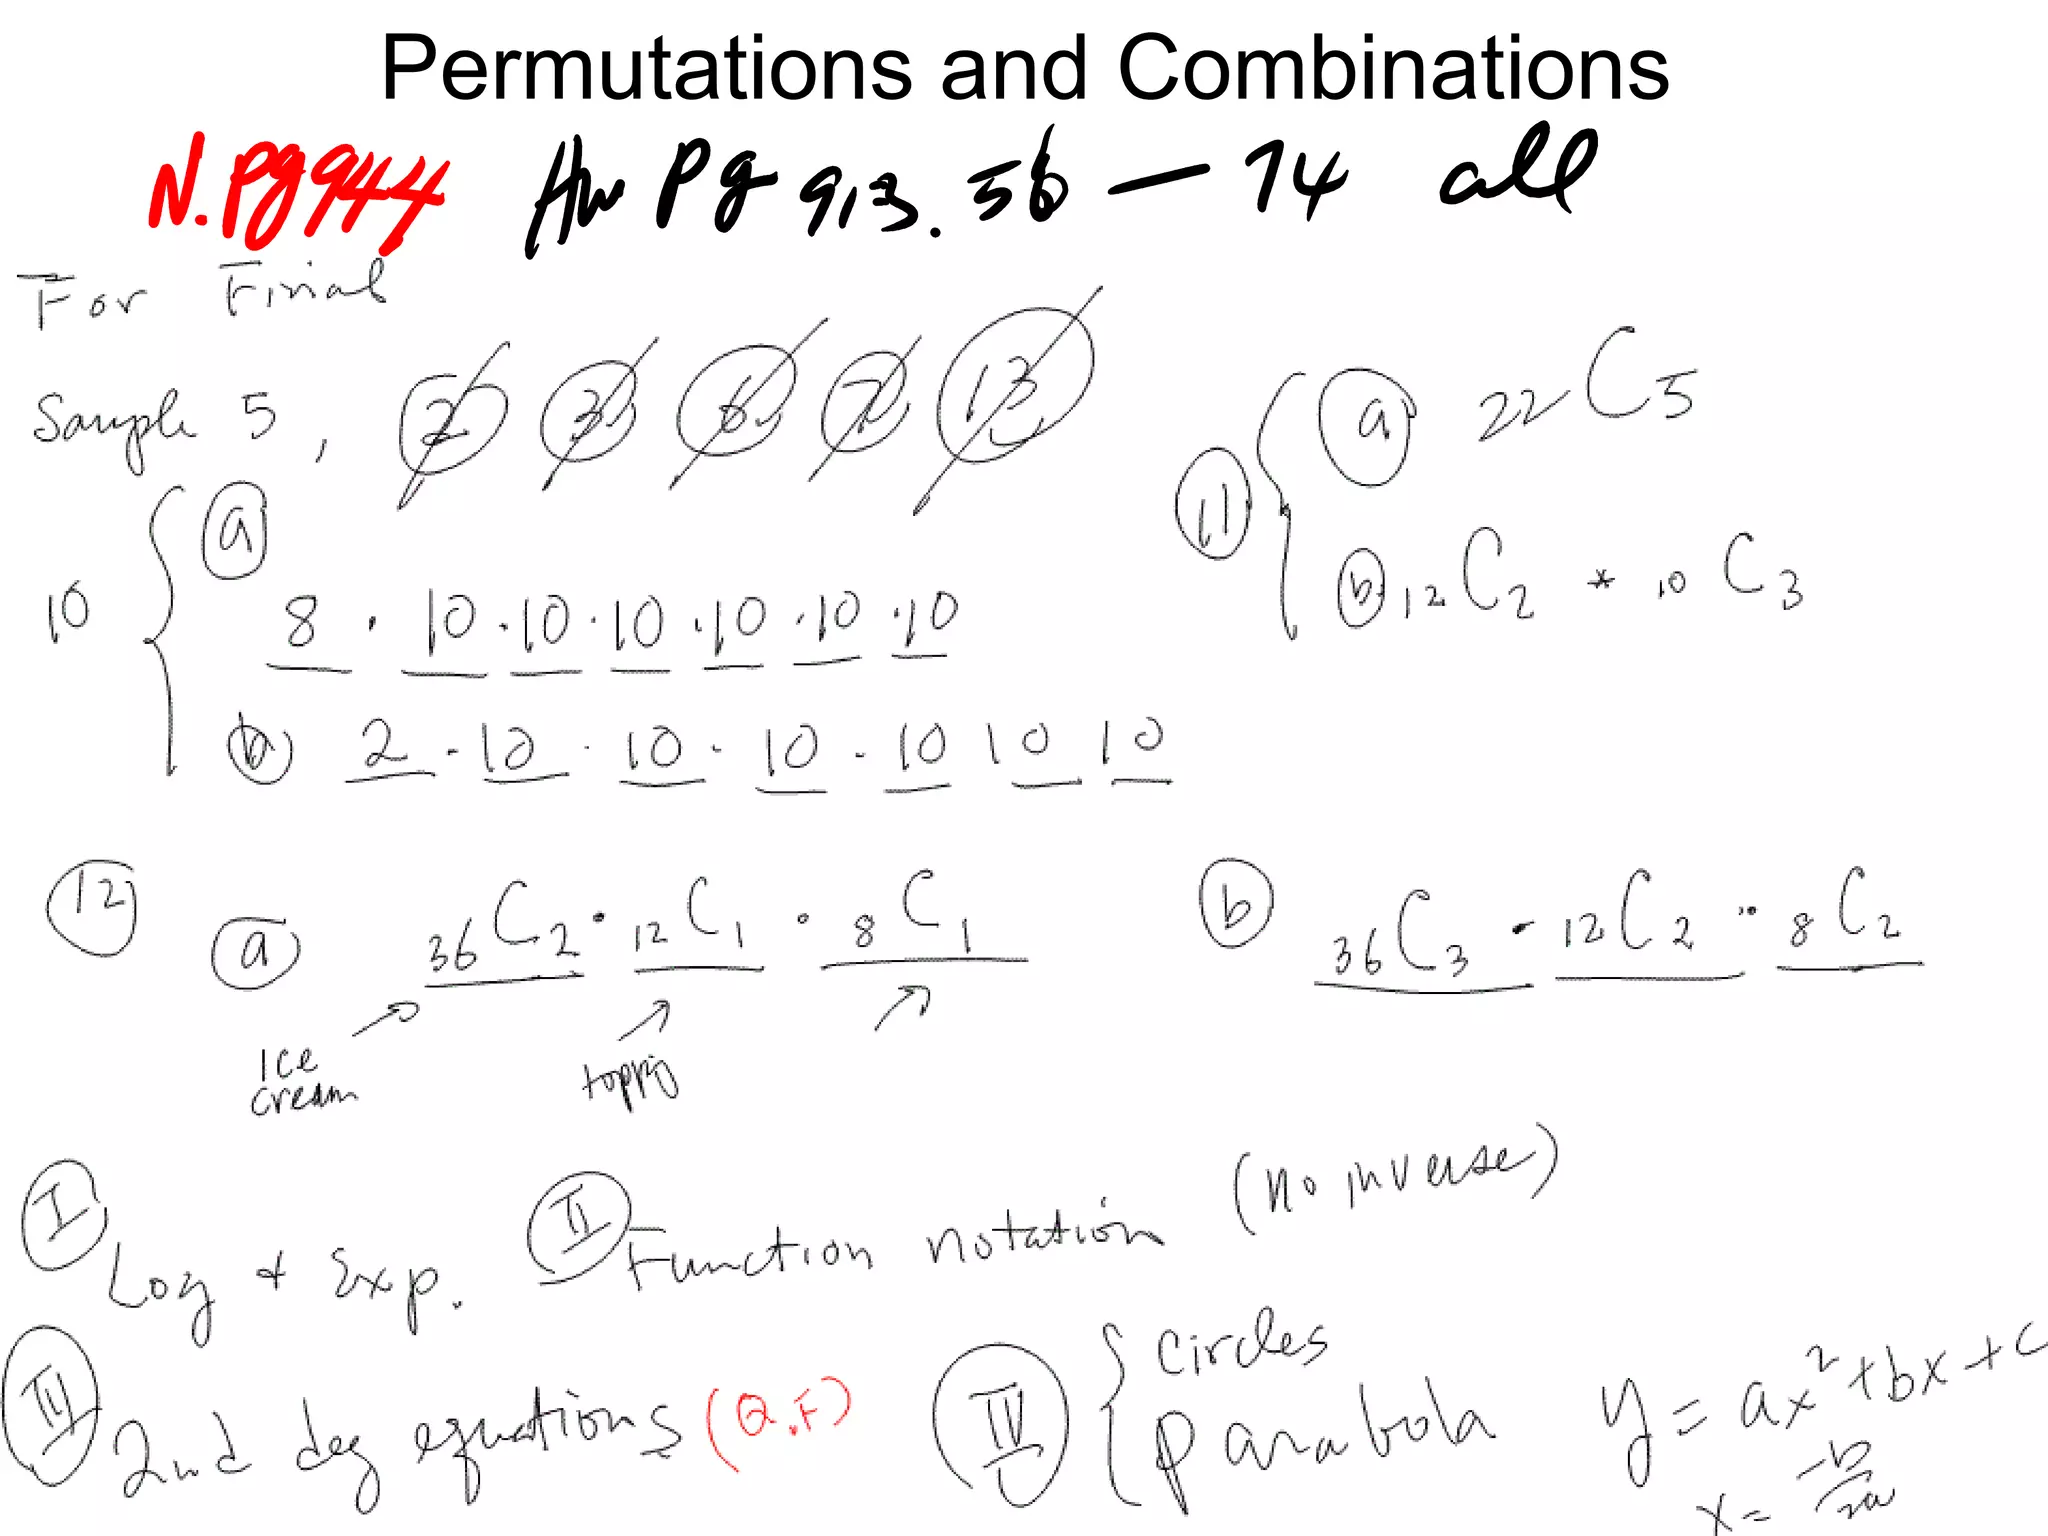 Permutations and Combinations
N. Pg 944 Hw Pg 913. 56 — 74 all
For Final
Sample 5, 2 3 6 7 13
10 { a
8 · 10 · 10 · 10 · 10 · 10 · 10
b 2 · 10 · 10 · 10 · 10 10 10
11 { a 22C5
b 12C2 * 10C3
12 a 36C2 · 12C1 · 8C1
ice cream
topping
b 36C3 · 12C2 · 8C2
I Log + Exp. II Function notation (no inverse)
III 2nd deg equations (Q.F)
IV { Circles
Parabola y = ax²+bx+c
x = -b/2a